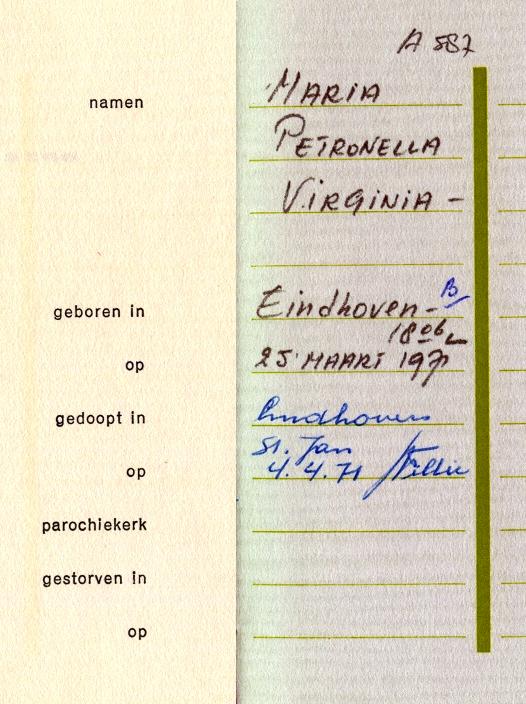 A 587
namen MARIA
PETRONELLA
VIRGINIA -
geboren in Eindhoven - B
18
op 25 MAART 1971
gedoopt in Eindhoven
St. Jan
op 4.4.71
parochiekerk
gestorven in
op